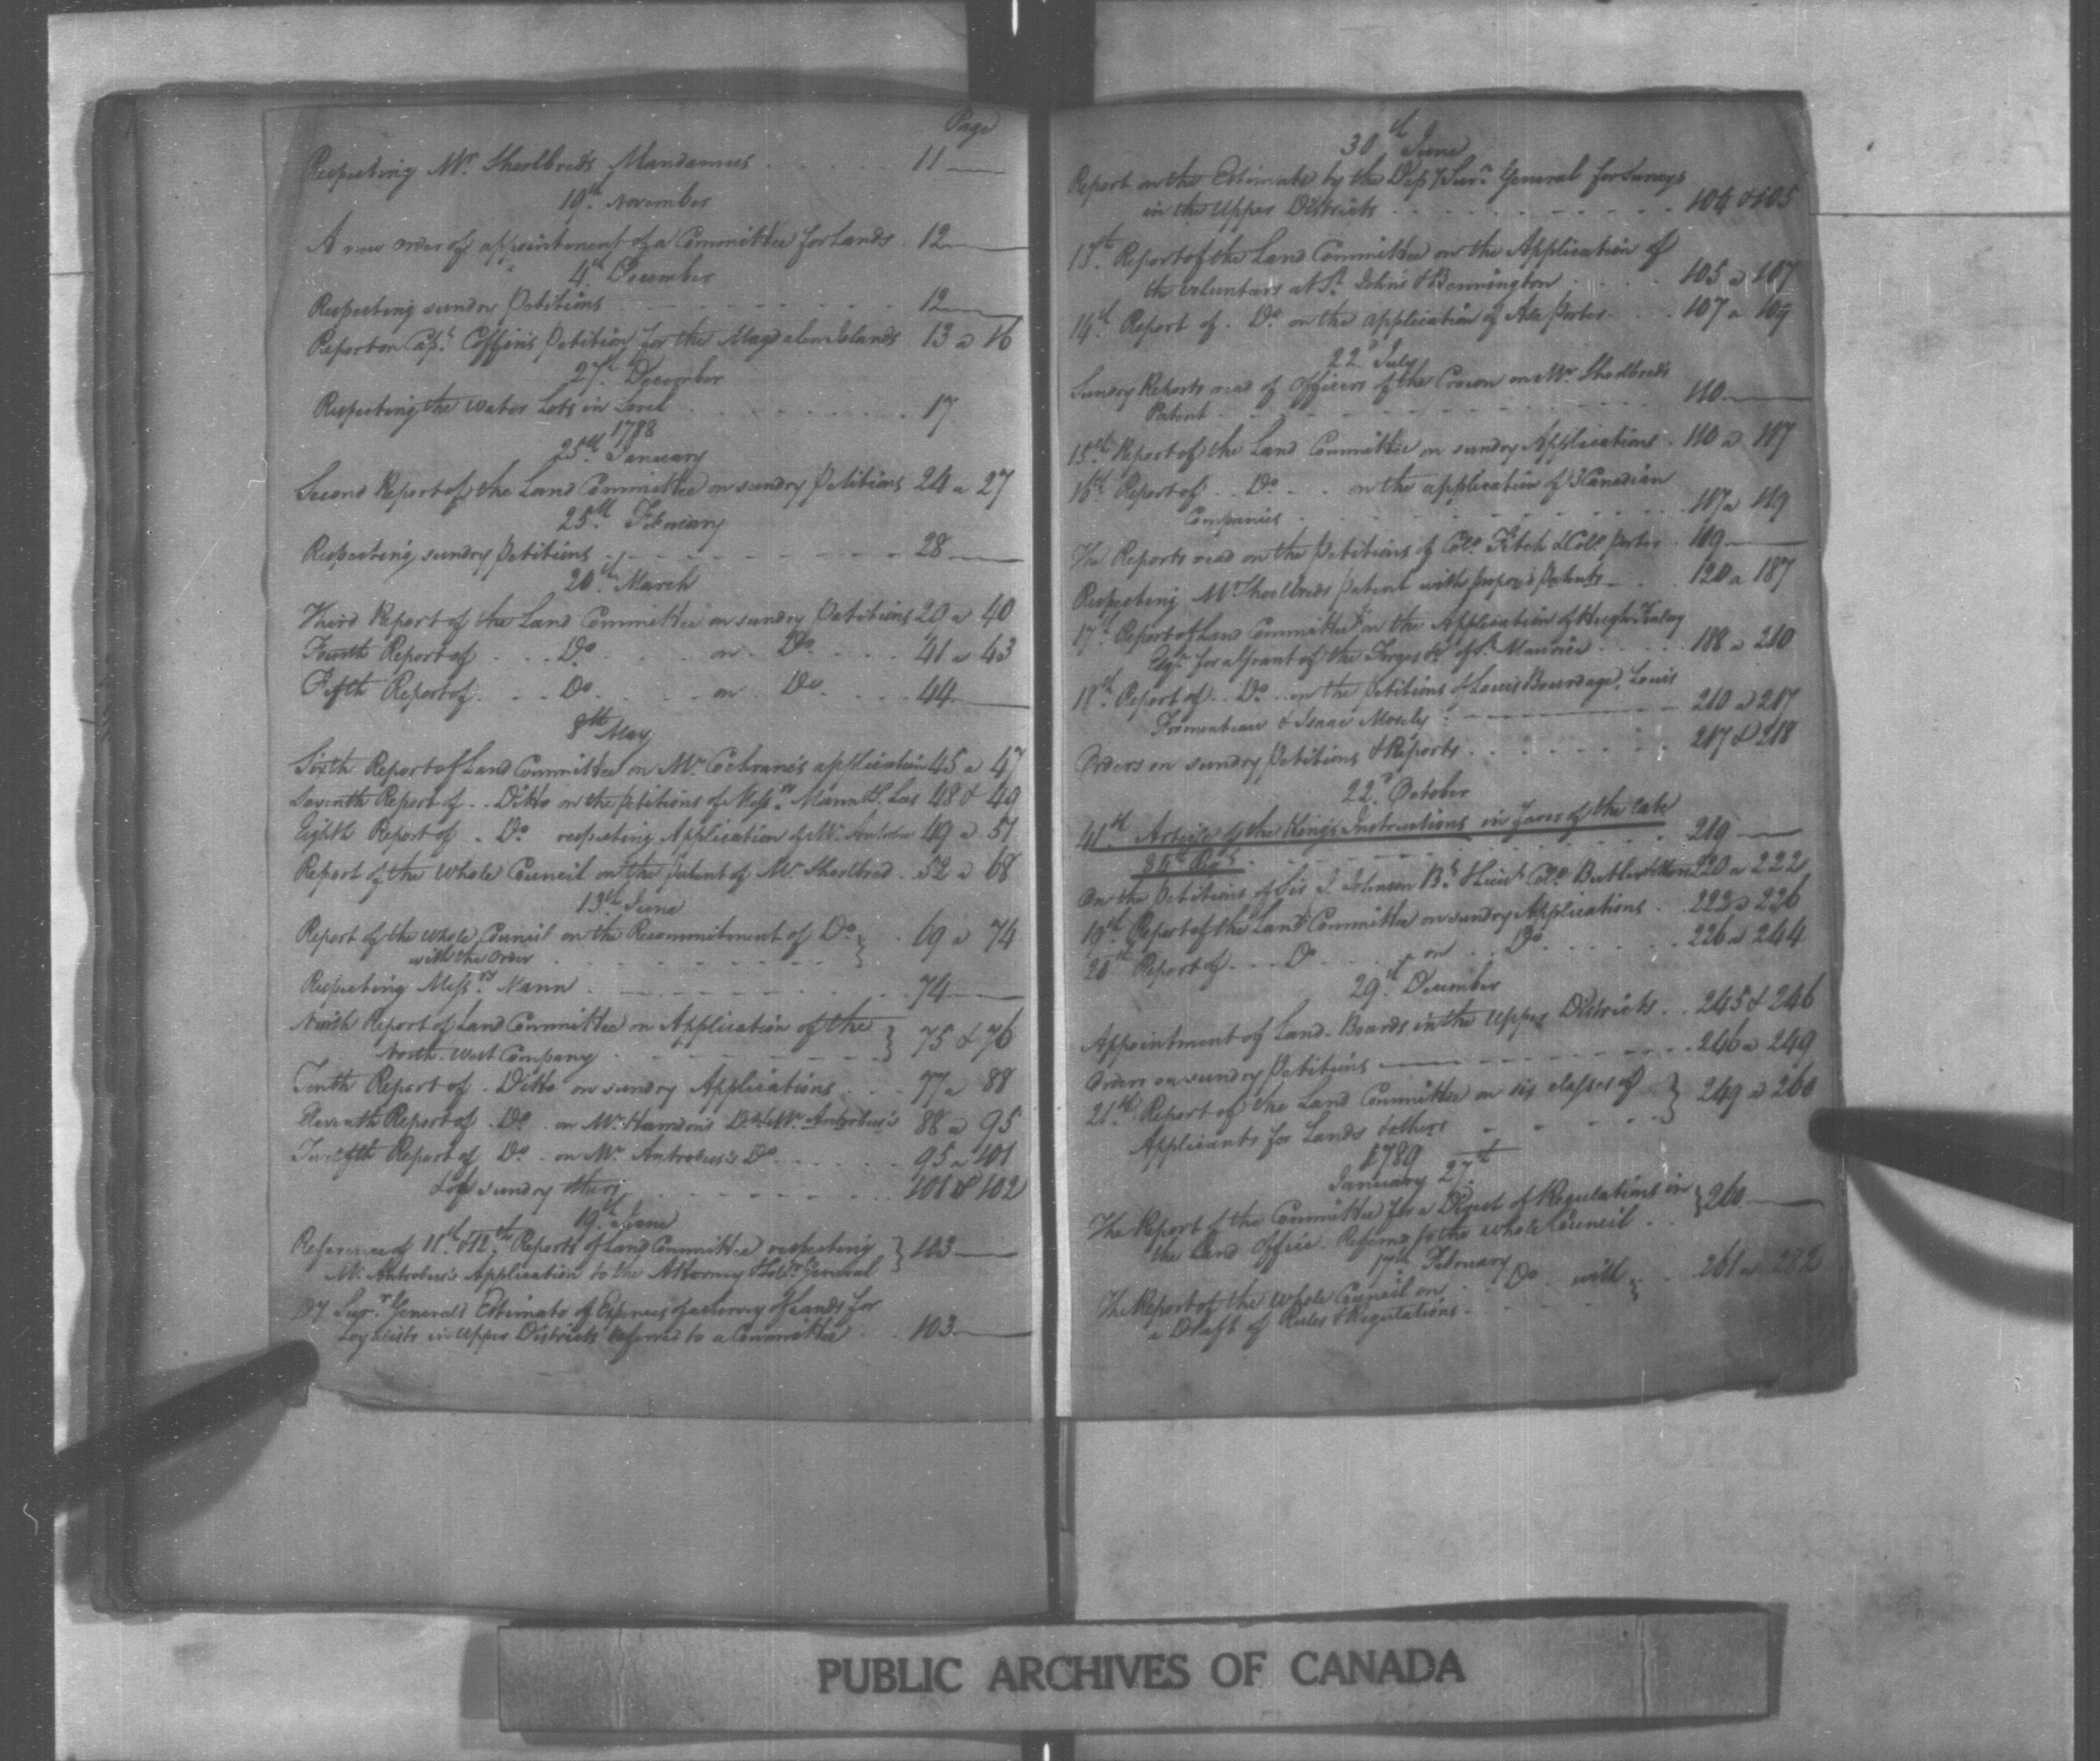 Page
Respecting Mr. Shoolbred's Mandamus 11
19th November
A new order of appointment of a Committee for Lands 12
4th December
Respecting sundry Petitions 12
Report on Capt. Coffin's Petition for the Magdalen Islands 13 a 16
27th December
Respecting the Water Lots in Sorel 17
1788
25th January
Second Report of the Land Committee on sundry Petitions 24 a 27
25th February
Respecting sundry Petitions 28
20th March
Third Report of the Land Committee on sundry Petitions 20 a 40
Fourth Report of Do on Do 41 a 43
Fifth Report of Do on Do 44
8th May
Sixth Report of Land Committee on Mr. Cochrane's application 45 a 47
Seventh Report of Ditto on the petitions of Messrs. Mann & 48 & 49
Eighth Report of Do respecting Application of Mr. 49 a 51
Report of the Whole Council on the Patent of Mr. Shoolbred 52 a 68
13th June
Report of the Whole Council on the Recommitment of Do 69 a 74
with the Order
Respecting Messrs. Mann 74
Ninth Report of Land Committee on Application of the
North West Company 75 & 76
Tenth Report of Ditto on sundry Applications 77 a 88
Eleventh Report of Do on Mr. Harrison's Do & Mr. Antrobus's 88 a 95
Twelfth Report of Do on Mr. Antrobus's Do 95 a 101
& of sundry others 101 & 102
19th June
Reference of 11th & 12th Reports of Land Committee respecting
Mr. Antrobus's Application to the Attorney & Solr. General 103
Dy Survr. General's Estimate of Expences of a Survey of Lands for
Loyalists in Upper Districts referred to a Committee 103
30th June
Report on the Estimate by the Depy Survr. General for Surveys
in the Upper Districts 104 & 105
13th Report of the Land Committee on the Application of
the volunteers at St. Johns & Bennington 105 a 107
14th Report of Do on the application of Asa Porter 107 a 109
22d July
Sundry Reports read of Officers of the Crown on Mr. Shoolbred's
Patent 110
15th Report of the Land Committee on sundry Applications 110 a 117
16th Report of Do on the application of 3 Canadian
Companies 117 a 119
The Reports read on the Petitions of Colo. Fitch & Colo. Porter 119
Respecting Mr. Shoolbreds Patent with propos'd Patents 120 a 187
17th Report of Land Committee on the Application of Hugh Finlay
Esqr. for a Grant of the Forges &c of St. Maurice 188 a 210
18th Report of Do on the Petitions of Louis Bourdage, Louis
Fromenteau & Isaac Mosely 210 a 217
Orders on sundry Petitions & Reports 217 & 218
22d October
41st Article of the King's Instructions in favor of the late
84th Regt. 219
On the Petitions of Sir J. Johnson Bt. & Lieut. Colo. Butler 220 a 222
19th Report of the Land Committee on sundry Applications 223 a 226
20th Report of Do on Do 226 a 244
29th December
Appointment of Land Boards in the Upper Districts 245 & 246
Orders on sundry Petitions 246 a 249
21st Report of the Land Committee on six classes of
Applicants for Lands & others 249 a 260
1789
January 27th
The Report of the Committee for a Digest of Regulations in
the Land Office Referred to the whole Council 260
17th February
The Report of the whole Council on Do with
a Draft of Rules & Regulations 261 a 282
PUBLIC ARCHIVES OF CANADA